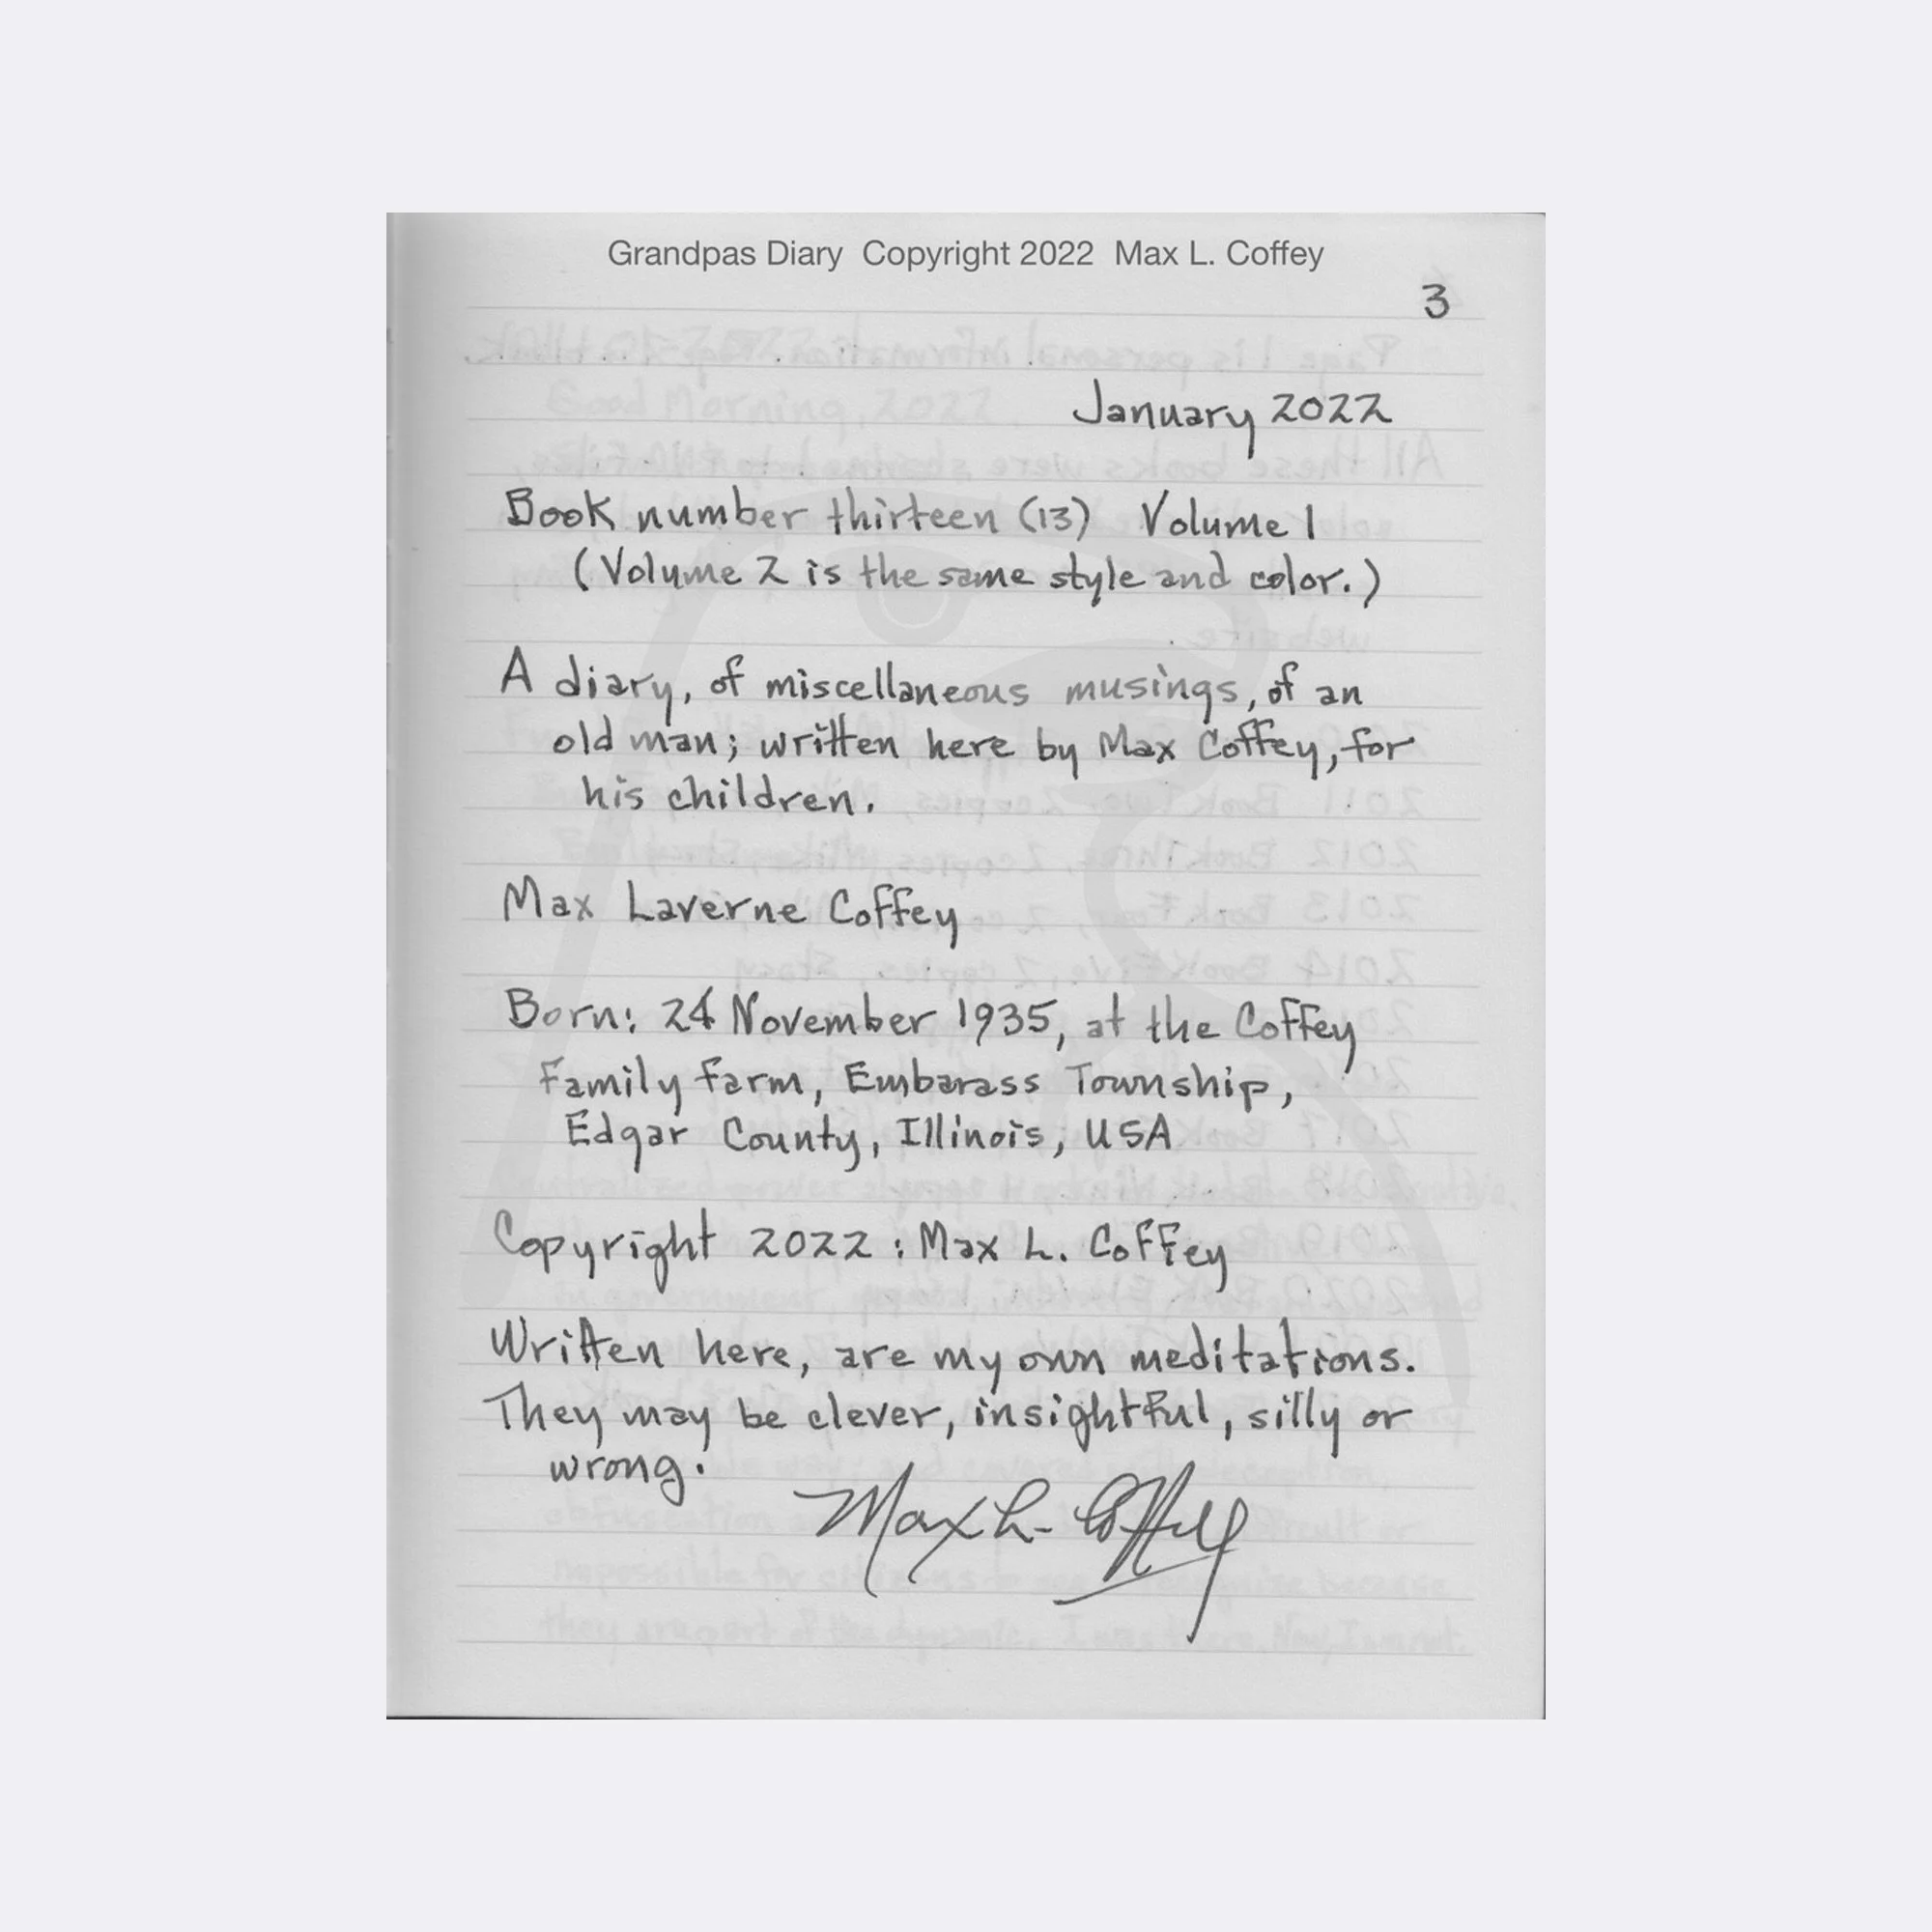 Grandpas Diary Copyright 2022 Max L. Coffey
3
January 2022
Book number thirteen (13) Volume 1
(Volume 2 is the same style and color.)
A diary, of miscellaneous musings, of an
old man; written here by Max Coffey, for
his children.
Max Laverne Coffey
Born: 24 November 1935, at the Coffey
Family Farm, Embarass Township,
Edgar County, Illinois, USA
Copyright 2022: Max L. Coffey
Written here, are my own meditations.
They may be clever, insightful, silly or
wrong.
Max L. Coffey